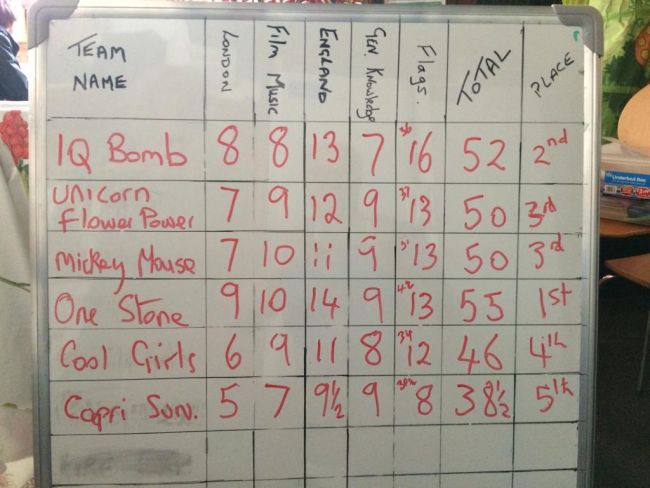 TEAM NAME LONDON Film Music ENGLAND GEN Knowledge Flags. TOTAL PLACE
IQ Bomb 8 8 13 7 36 16 52 2nd
Unicorn
Flower Power 7 9 12 9 37 13 50 3rd
Mickey Mouse 7 10 11 9 13 50 3rd
One Stone 9 10 14 9 42 13 55 1st
Cool Girls 6 9 11 8 34 12 46 4th
Capri Sun. 5 7 9½ 9 8 38½ 5th
Underbed Box